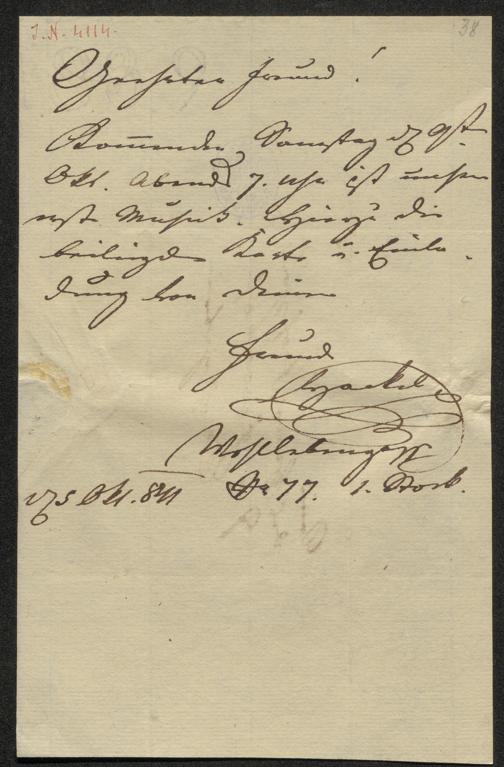 I. N. 4114.
38
Geehrter Freund!
Kommenden Samstag d 9t
Okt. Abends 7. Uhr ist unsere
erste Musik. Hierzu die
beiliegende Karte u. Einla-
dung von Deinem
Freund
Wohllebengasse
d 5 Okt. 841 No 77. 1. Stock.